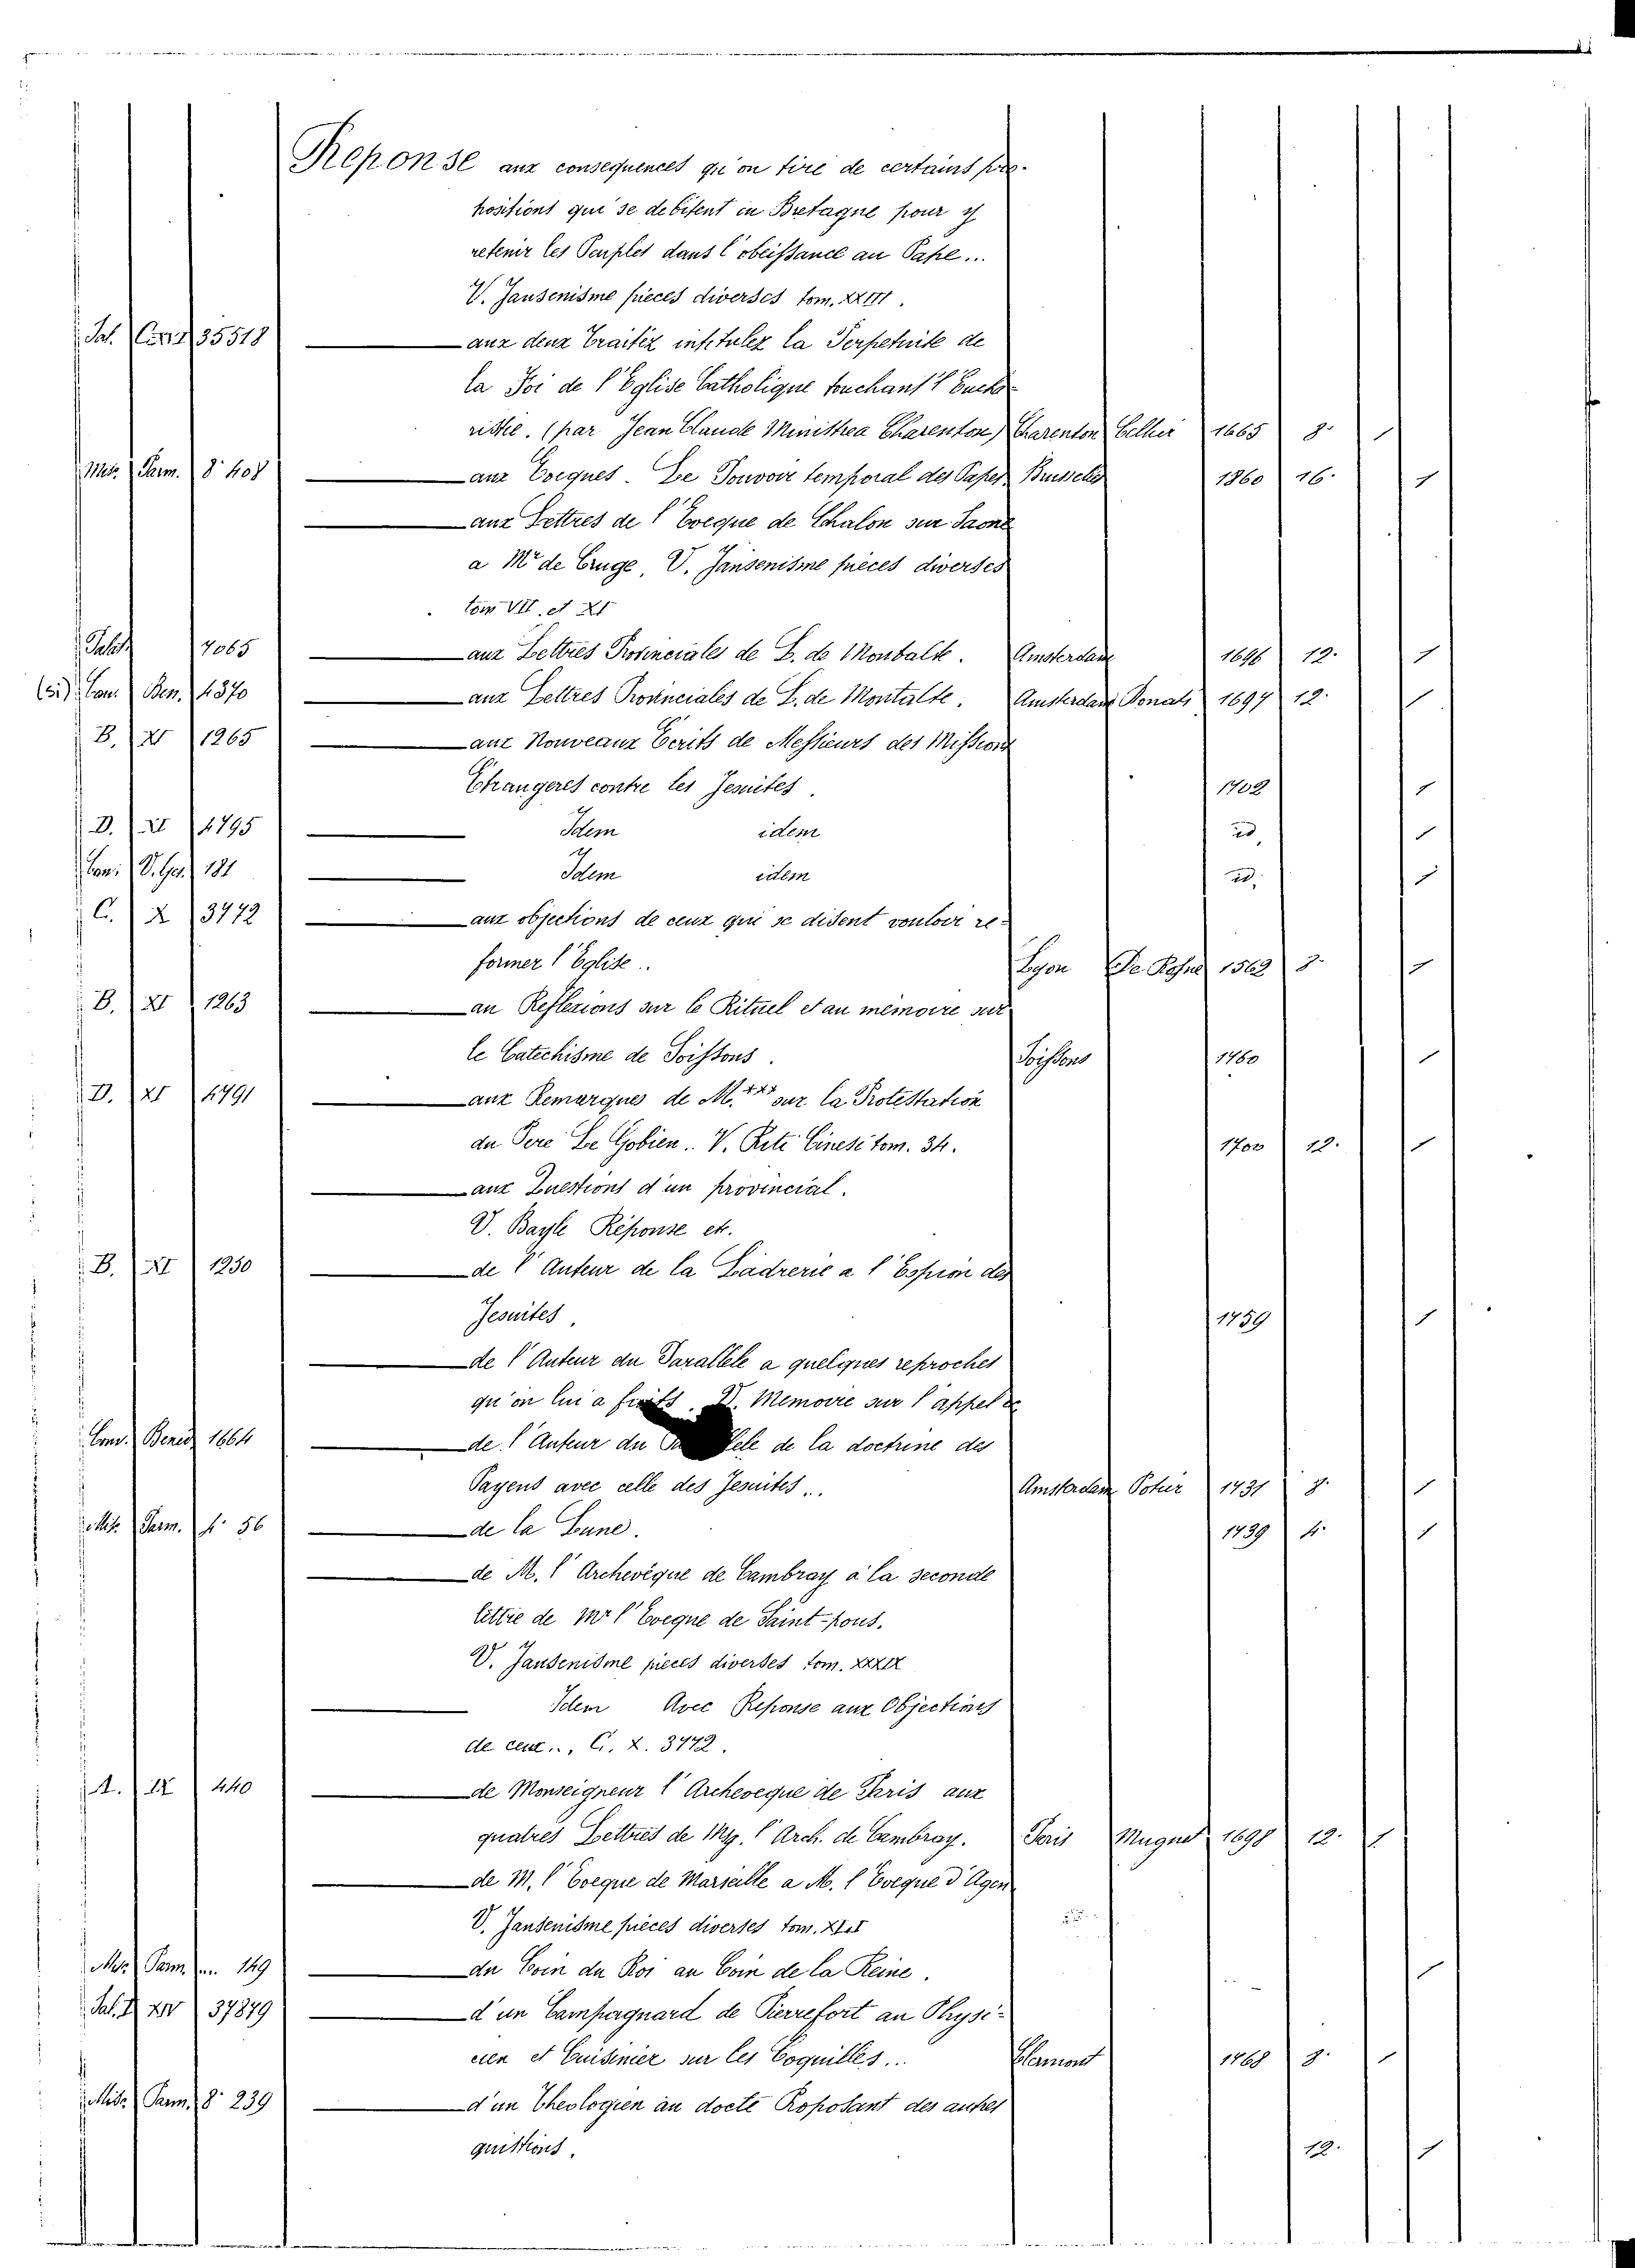 Reponse aux consequences qu'on tire de certains pro-
positions qui se debitent in Bretagne pour y
retenir les Peuples dans l'obeissance au Pape...
V. Jansenisme pieces diverses tom. XXIII.
Pal. 35518 — aux deux Traitéz intitulez la Perpetuite de
la Foi de l'Eglise Catholique touchant l'Eucha-
ristie. (par Jean Claude Ministre a Charenton) Charenton Cellier 1665 8. 1
Misc. Parm. 8. 408 — aux Eveques. Le Pouvoir temporal des Papes Bruxelles 1860 16. 1
— aux Lettres de l'Eveque de Chalon sur Saone
a Mr de Cruge, V. Jansenisme pieces diverses
tom VII. et XI
Palat. 7065 — aux Lettres Provinciales de L. de Montalte. Amsterdam 1696 12. 1
(si) Cam. Ben. 4370 — aux Lettres Provinciales de L. de Montalte. Amsterdam Donati 1697 12. 1
B. XI 1265 — aux Nouveaux Ecrits de Messieurs des Missions
Etrangeres contre les Jesuites. 1702 1
D. XI 4795 — Idem idem id. 1
Com. V. Ger. 181 — Idem idem id. 1
C. X 3472 — aux objections de ceux qui se disent vouloir re-
former l'Eglise.. Lyon 1562 8. 1
B. XI 1263 — au Reflexions sur le Rituel et au mémoire sur
le Catechisme de Soissons. Soissons 1760 1
D. XI 4791 — aux Remarques de M.*** sur la Protestation
du Pere Le Gobien.. V. Riti Cinesi tom. 34. 1700 12. 1
— aux Questions d'un provincial.
V. Bayle Réponse etc.
B. XI 1250 — de l'Auteur de la Ladrerie a l'Espion des
Jesuites. 1759 1
— de l'Auteur du Parallele a quelques reproches
qu'on lui a faits. V. Memoire sur l'appel &
Com. Bened. 1664 — de l'Auteur du Parallele de la doctrine des
Payens avec celle des Jesuites.. Amsterdam Potier 1731 8. 1
Misc. Parm. 4. 56 — de la Lune. 1739 4. 1
— de M. l'Archevêque de Cambray à la seconde
lettre de Mr l'Eveque de Saint-pons.
V. Jansenisme pieces diverses tom. XXXIX
— Idem Avec Reponse aux Objections
de ceux.., C. X. 3472.
A. IX 440 — de Monseigneur l'Archeveque de Paris aux
quatres Lettres de Mg. l'Arch. de Cambray. Paris Muguet 1698 12. 1
— de M. l'Eveque de Marseille a M. l'Eveque d'Agen
V. Jansenisme pieces diverses tom.
Misc. Parm. in. 149 — du Coin du Roi au Coin de la Reine. 1
Pal. XIV 37879 — d'un Campagnard de Pierrefort au Physi-
cien et Cuisinier sur les Coquilles... Clermont 1768 8. 1
Misc. Parm. 8. 239 — d'un Theologien au docte Proposant des autres
questions. 12. 1